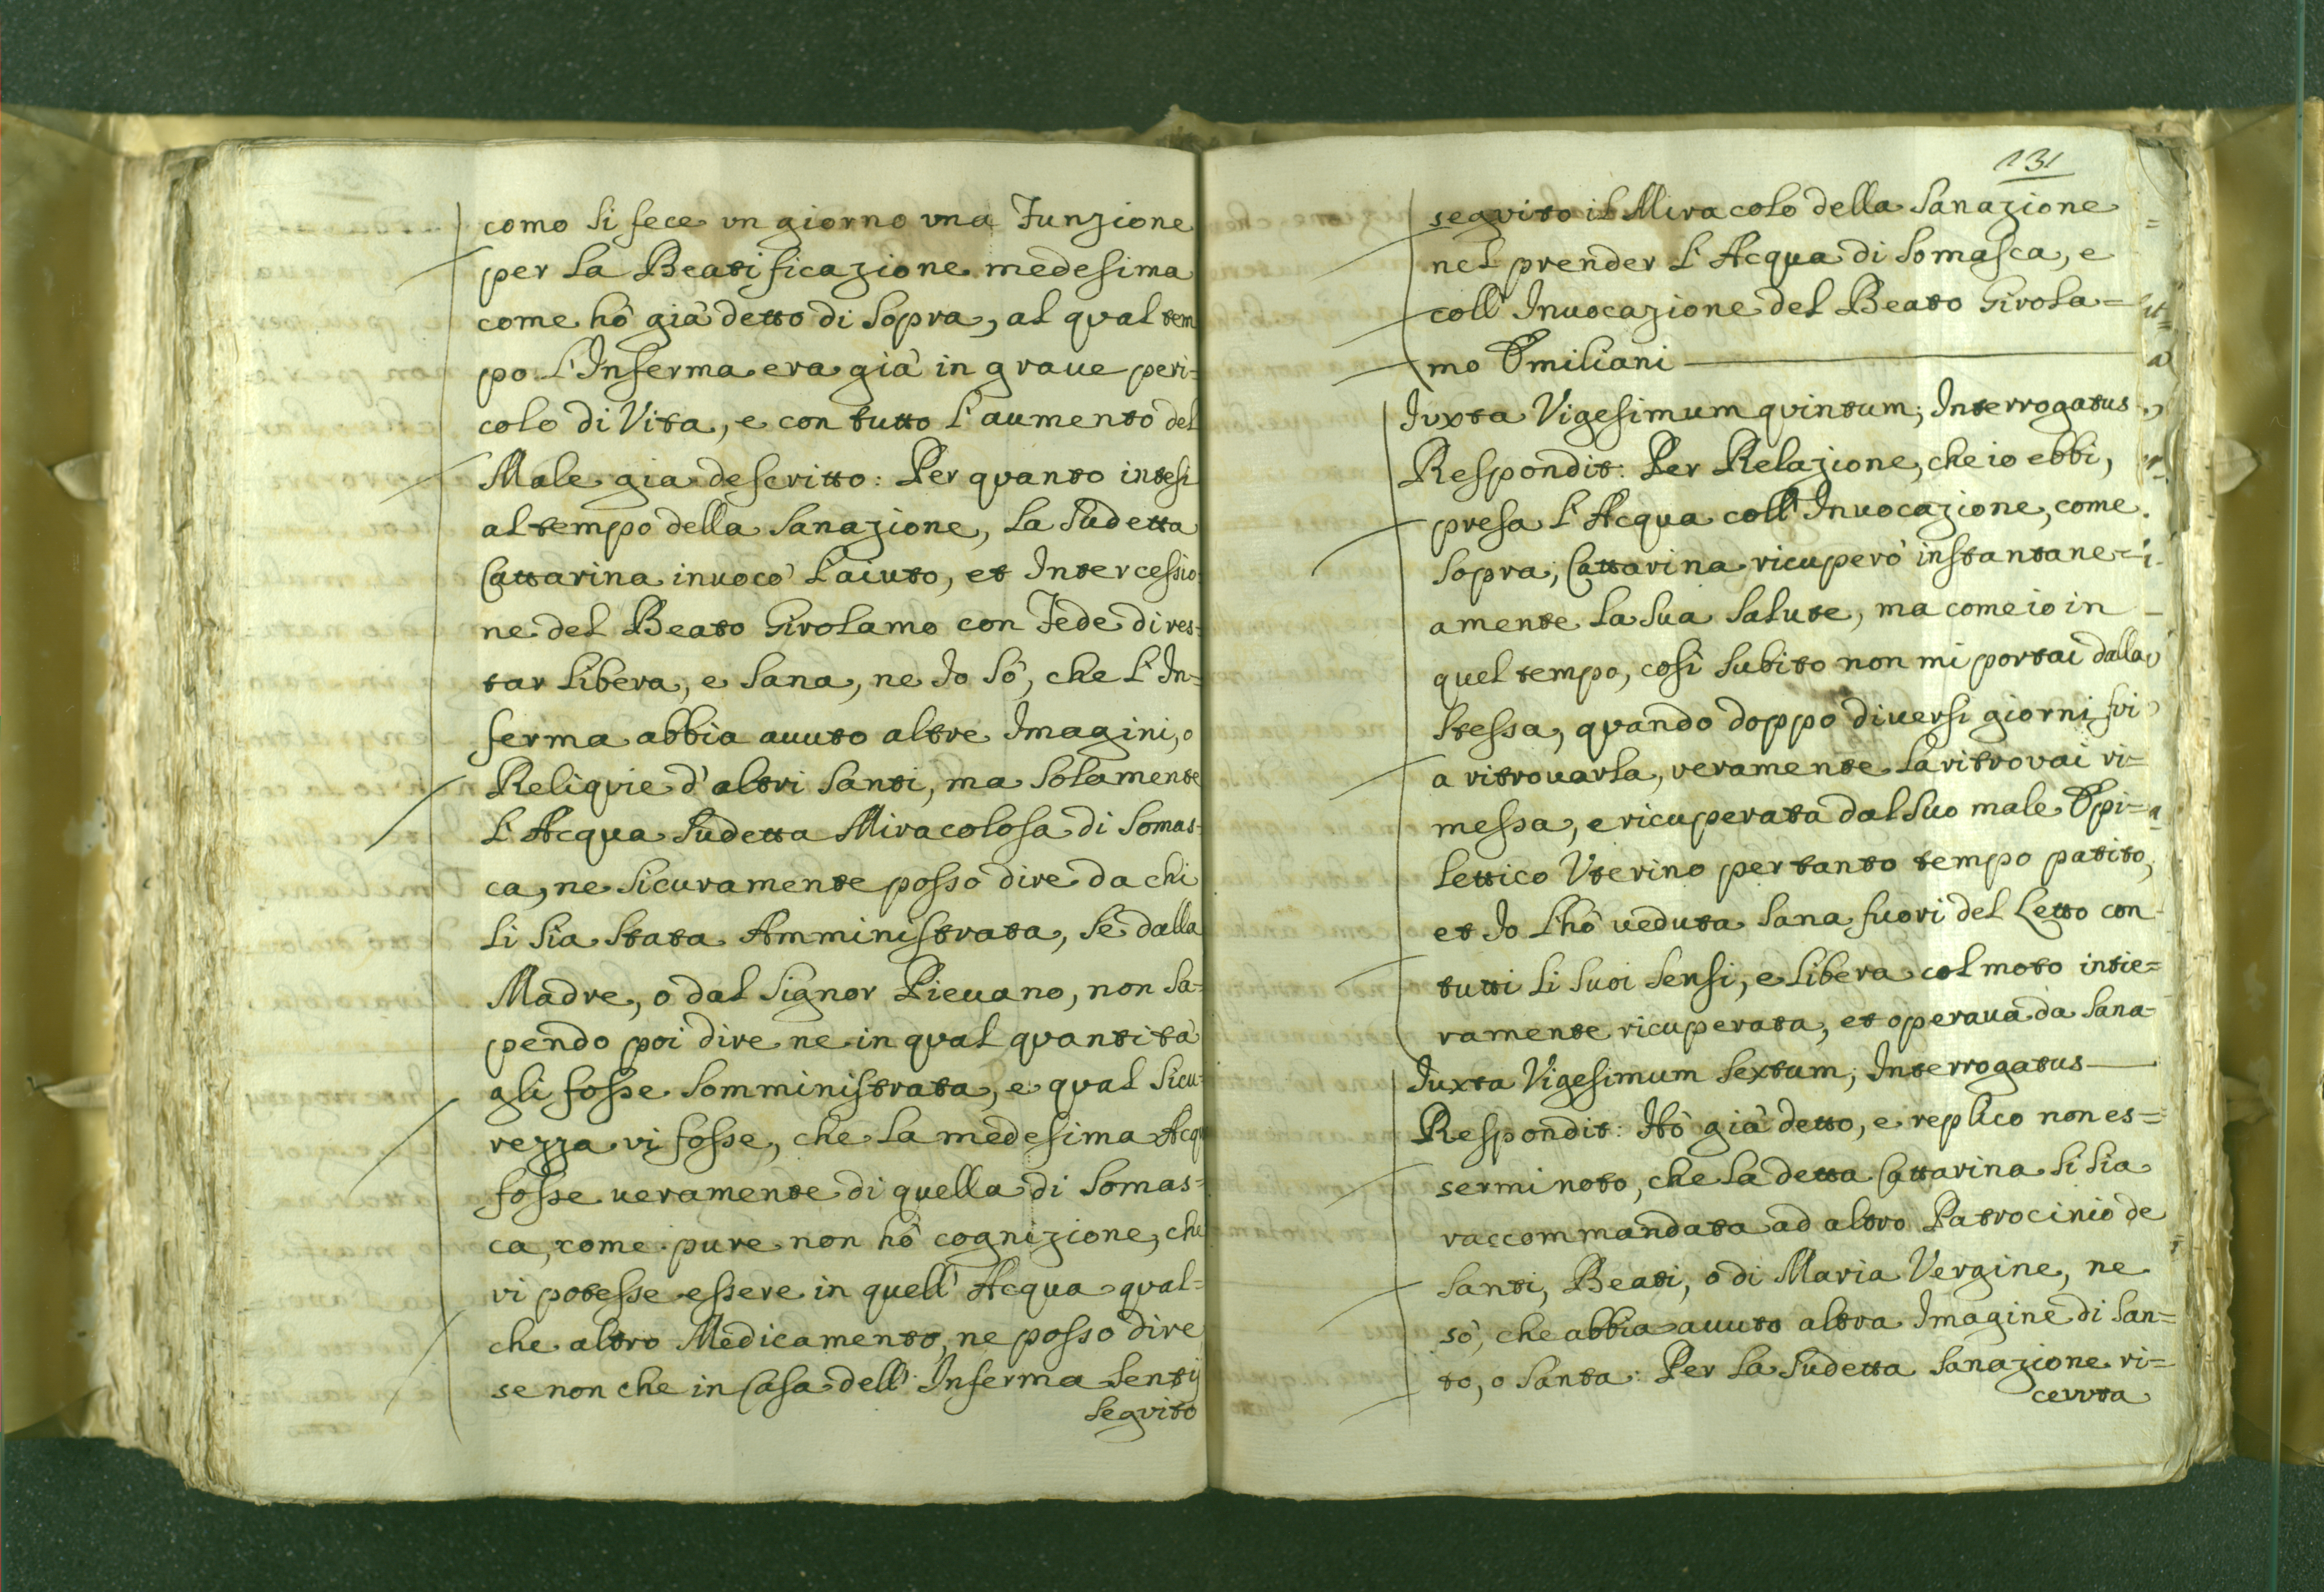 como si fece vn giorno vna Funzione
per la Beatificazione medesima
come hò già detto di sopra, al qual tem
po l'Inferma era già in graue peri=
colo di Vita, e con tutto l'aumento del
Male gia descritto: Per quanto intesi
al tempo della Sanazione, la sudetta
Cattarina inuocò l'aiuto, et Intercessio
ne del Beato Girolamo con Fede di res=
tar libera, e sana, ne Io sò, che l'In=
ferma abbia auuto altre Imagini, o
Reliquie d'altri Santi, ma solamente
l'Acqua sudetta Miracolosa di Somas=
ca, ne sicuramente posso dire da chi
li sia stata Amministrata, se dalla
Madre, o dal Signor Pieuano, non sa=
pendo poi dire ne in qual quantità
gli fosse somministrata, e qual sicu=
rezza vi fosse, che la medesima Acqu
fosse ueramente di quella di Somas=
ca, come pure non hò cognizione, che
vi potesse essere in quell'Acqua qual=
che altro Medicamento, ne posso dire
se non che in Casa dell'Inferma sentij
seguito
131
seguito il Miracolo della Sanazione
nel prender l'Acqua di Somasca, e
coll'Inuocazione del Beato Girola=
mo Emiliani
Iuxta Vigesimum quintum, Interrogatus
Respondit: Per Relazione, che io ebbi,
presa l'Acqua coll'Inuocazione, come
sopra, Cattarina ricuperò instantane=
amente la sua salute, ma come io in
quel tempo, così subito non mi portai dalla
stessa, quando doppo diuersi giorni fui
a ritrouarla, veramente la ritrovai ri=
messa, e ricuperata dal suo male Epi=
lettico Vterino per tanto tempo patito,
et Io l'hò ueduta sana fuori del Letto con
tutti li suoi sensi, e libera col moto intie=
ramente ricuperata, et operaua da sana
Iuxta Vigesimum sextum, Interrogatus
Respondit: Hò già detto, e replico non es=
sermi noto, che la detta Cattarina si sia
raccommandata ad altro Patrocinio de
Santi, Beati, o di Maria Vergine, ne
sò, che abbia auuto altra Imagine di San=
to, o Santa: Per la sudetta Sanazione ri=
ceuuta